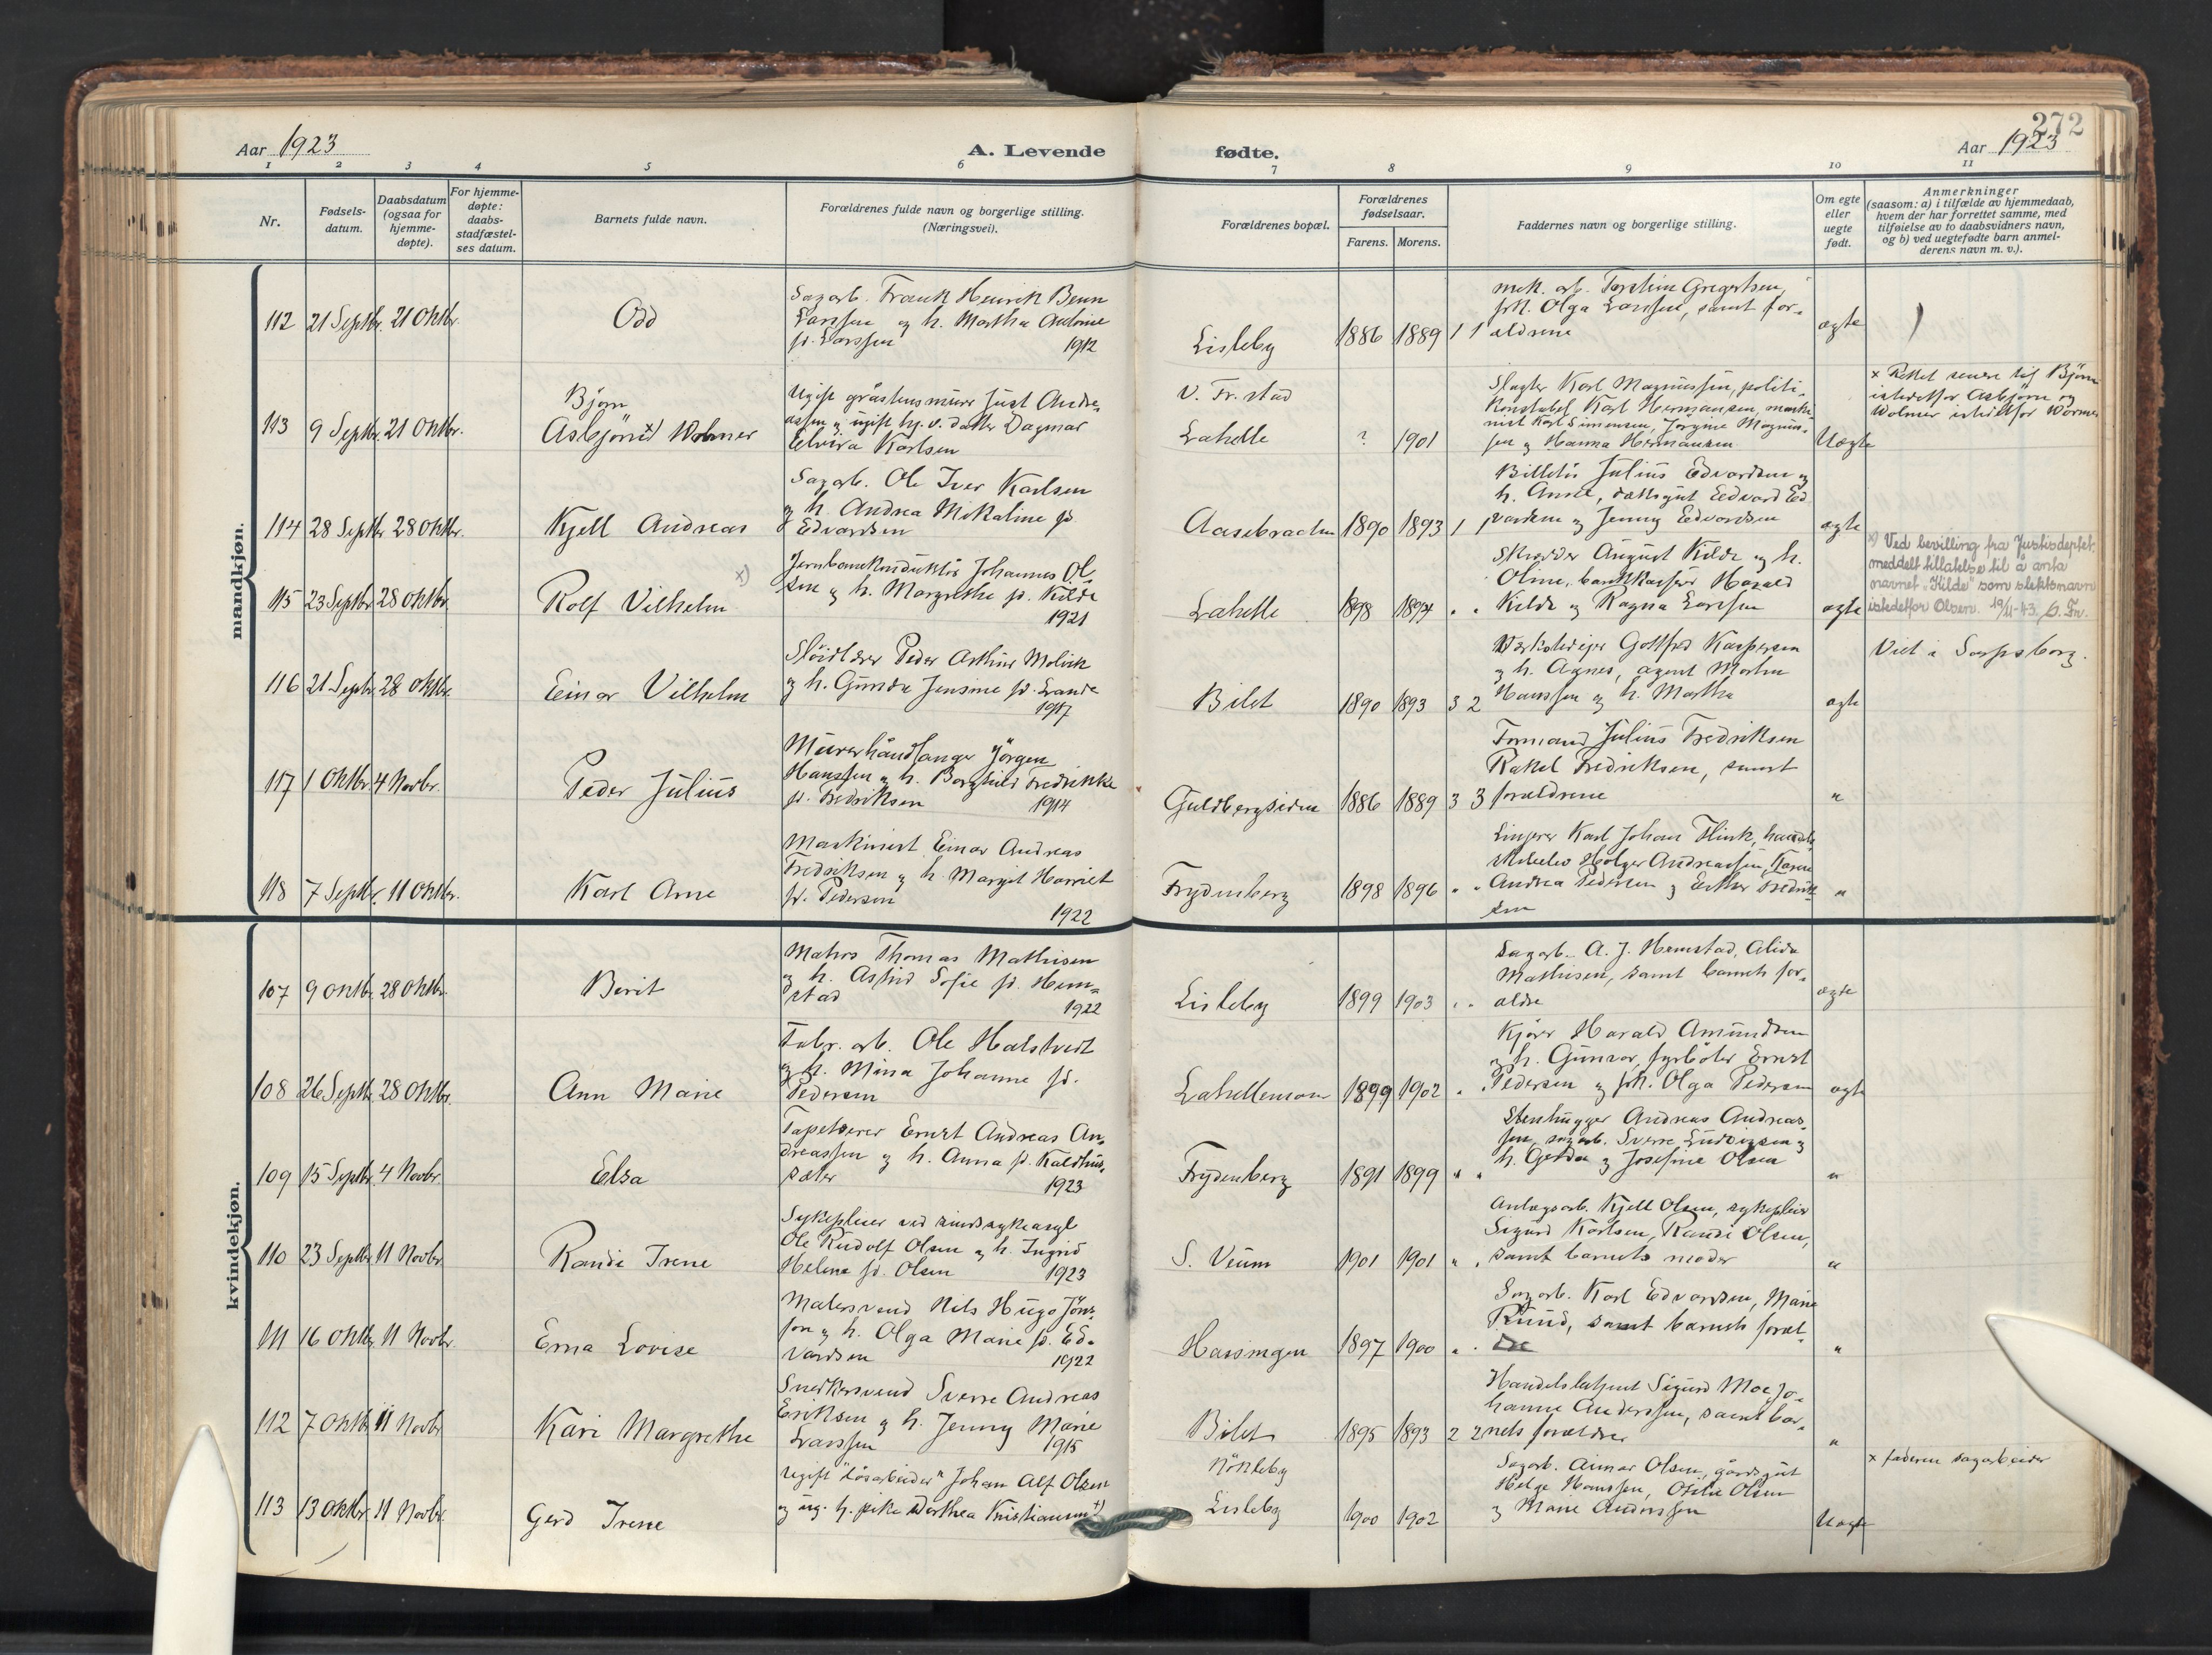 272
Aar 1923
A. Levende
fødte.
Aar 1923
1 2 3 4 5 6 7 8 9 10 11
Nr.
Fødsels-
datum.
Daabsdatum
(ogsaa for
hjemme-
døpte).
For hjemme-
døpte:
daabs-
stadfæstel-
ses datum.
Barnets fulde navn.
Forældrenes fulde navn og borgerlige stilling.
(Næringsvei).
Forældrenes bopæl.
Forældrenes
fødselsaar.
Farens. Morens.
Faddernes navn og borgerlige stilling.
Om egte
eller
uegte
født.
Anmerkninger
(saasom: a) i tilfælde av hjemmedaab,
hvem der har forrettet samme, med
tilføielse av to daabsvidners navn,
og b) ved uegtefødte barn anmel-
derens navn m. v.).
mandkjøn.
112 21 Septbr. 21 Oktbr.
Odd
Sagarb. Frank Henrik Benn
Larssen og h. Martha Antonie
fd. Larssen 1912
Lisleby
1886 1889 1 1
mek. arb. Torstein Gregertsen,
frk. Olga Larssen, samt for-
ældrene
ægte
113 9 Septbr. 21 Oktbr.
Bjørn
Asbjørn x) Wolmer
Ugift gråstensmurer Just Andre-
assen og ugift hj. v. datter Dagmar
Elvira Karlsen
V. Fr.stad
Lahelle
? 1901
Slagter Karl Magnussen, politi-
konstabel Karl Hermansen, maski-
nist Karl Simensen, Jørgine Magnus-
sen og Hanna Hermansen
Uægte
x Rettet senere til Bjørn
istedetfor Asbjørn og
Wolmer istedetfor Wormer
114 28 Septbr. 28 Oktbr.
Kjell Andreas
Sagarb. Ole Iver Karlsen
og h. Andrea Mikaline fd.
Edvardsen
Aasebraaten
1890 1893 1 1
Billetør Julius Edvardsen og
h. Anna, dæksgut Edvard Ed-
vardsen og Jenny Edvardsen
ægte
115 23 Septbr. 28 Oktbr.
Rolf Vilhelm x)
Jernbanekonduktør Johannes Ol-
sen og h. Margrethe fd. Kilde
1921
Lahelle
1898 1894 " "
Skrædder August Kilde og h.
Oline, bankkasserer Harald
Kilde og Ragna Larssen
ægte
x) Ved bevilling fra Justisdeptet.
meddelt tillatelse til å anta
navnet "Kilde" som slektsnavn
istedetfor Olsen. 19/11-43. G. Fr.
116 21 Septbr. 28 Oktbr.
Einar Vilhelm
Sløidlærer Peder Arthur Molvik
og h. Gunda Jensine fd. Lande
1917
Bilet
1890 1893 3 2
Værkstedeier Gottfred Kaspersen
og h. Agnes, agent Morten
Hanssen og h. Martha
ægte
Viet i Sarpsborg.
117 1 Oktbr. 4 Novbr.
Peder Julius
Murerhåndlanger Jørgen
Hanssen og h. Borghild Fredrikke
fd. Fredriksen 1914
Guldbergsiden
1886 1889 3 3
Formand Julius Fredriksen
Rakel Fredriksen, samt
forældrene
"
118 7 Septbr. 11 Oktbr.
Karl Arne
Maskinist Einar Andreas
Fredriksen og h. Margit Harriet
fd. Pedersen
1922
Frydenberg
1898 1896 " "
Karl Johan Flink,
Holger Andreassen, Karen
Andrea Pedersen og Esther Fredrik-
sen
"
kvindekjøn.
107 9 Oktbr. 28 Oktbr.
Berit
Matros Thomas Mathisen
og h. Astrid Sofie fd. Hem-
stad 1922
Lisleby
1899 1903 " "
Sagarb. A. J. Hemstad, Alida
Mathisen, samt barnets for-
ældre
ægte
108 26 Septbr. 28 Oktbr.
Ann Marie
Fabr. arb. Ole Halstvedt
og h. Mina Johanne fd.
Pedersen
Lahellemoen
1899 1902 " "
Kjører Harald Amundsen
og h. Gunvor, fyrbøter Ernst
Pedersen og frk. Olga Pedersen
ægte
109 15 Septbr. 4 Novbr.
Elsa
Tapetserer Ernst Andreas An-
dreassen og h. Anna fd. Kaldhus-
sæter 1923
Frydenberg
1891 1899 " "
Stenhugger Andreas Andreas-
sen, sagarb. Sverre Ludvigsen og
h. Gerda og Josefine Olsen
"
110 23 Septbr. 11 Novbr.
Randi Irene
Sykepleier ved sindssykeasyl
Ole Rudolf Olsen og h. Ingrid
Helene fd. Olsen 1923
S. Veum
1901 1901 " "
Anlægsarb. Kjell Olsen, sykepleier
Sigurd Karlsen, Randi Olsen,
samt barnets moder
"
111 16 Oktbr. 11 Novbr.
Erna Lovise
Malersvend Nils Hugo Jöns-
son og h. Olga Marie fd. Ed-
vardsen 1922
Hassingen
1897 1900 " "
Sagarb. Karl Edvardsen, Marie
Ruud, samt barnets foræl-
dre
"
112 7 Oktbr. 11 Novbr.
Kari Margrethe
Snedkersvend Sverre Andreas
Eriksen og h. Jenny Marie
Larssen 1915
Bilet
1895 1893 2 2
Handelsbetjent Sigurd Moe, Jo-
hanne Anderssen, samt bar-
nets forældre
"
113 13 Oktbr. 11 Novbr.
Gerd Irene
Ugift "løsarbeider" Johan Alf Olsen
og ug. h. pike Dorthea Kristiansen x)
Nökleby
Lisleby
1900 1902
Sagarb. Aimar Olsen, gårdsgut
Helge Hanssen, Otilie Olsen
og Marie Anderssen
Uægte
x faderen sagarbeider